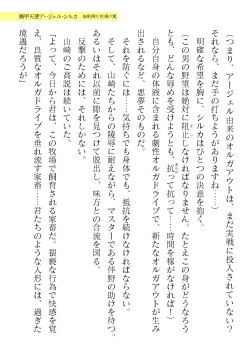 機甲天使アージェル・シルカ
（つまり、アージェル由来のオルガアウトは、まだ実戦に投入されていない？
それなら、まだ手の打ちようがありますね……）
明確な希望を胸に、シルカはひとつの決意を抱く。
（この男の野望は絶対に阻止しなければなりません！　たとえこの身がどうなろう
とも、どんな辱めを受けようとも、抗って抗って……時間を稼がなければ！）
自分自身の体液に含まれる劇性オルガドライブで、新たなオルガアウトが生み
出されるなど、悪夢そのものだ。
それを防ぐには……気持ちでも身体でも、抵抗を続けなければならない。
そして、山崎たちからの陵辱に耐えながら、マスターである伴野の助けを待つ。
あるいはそれ以前に隙を見つけて脱出し、味方との合流を図る。
反撃のためには、それしかない。
山崎のご高説は続いていた。
「よって、今日から君は、この牧場で飼育される家畜だ。猥褻な行為で快感を覚
え、良質なオルガドライブを垂れ流す家畜……君たちのような人形には、過ぎた
境遇だろうが」